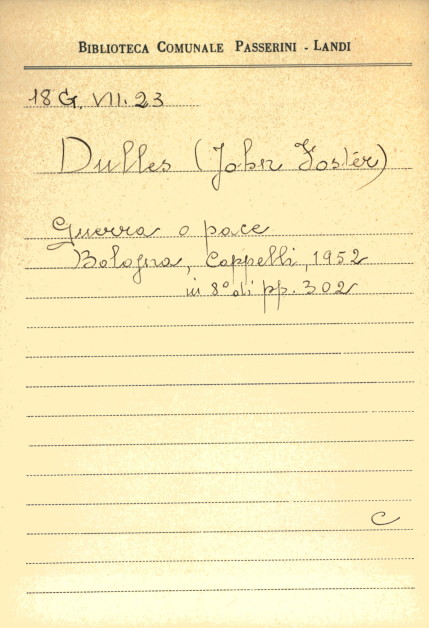 BIBLIOTECA COMUNALE PASSERINI - LANDI
18 G. VII. 23
Dulles (John Foster)
Guerra o pace
Bologna, Cappelli, 1952
in 8° di pp. 302
C